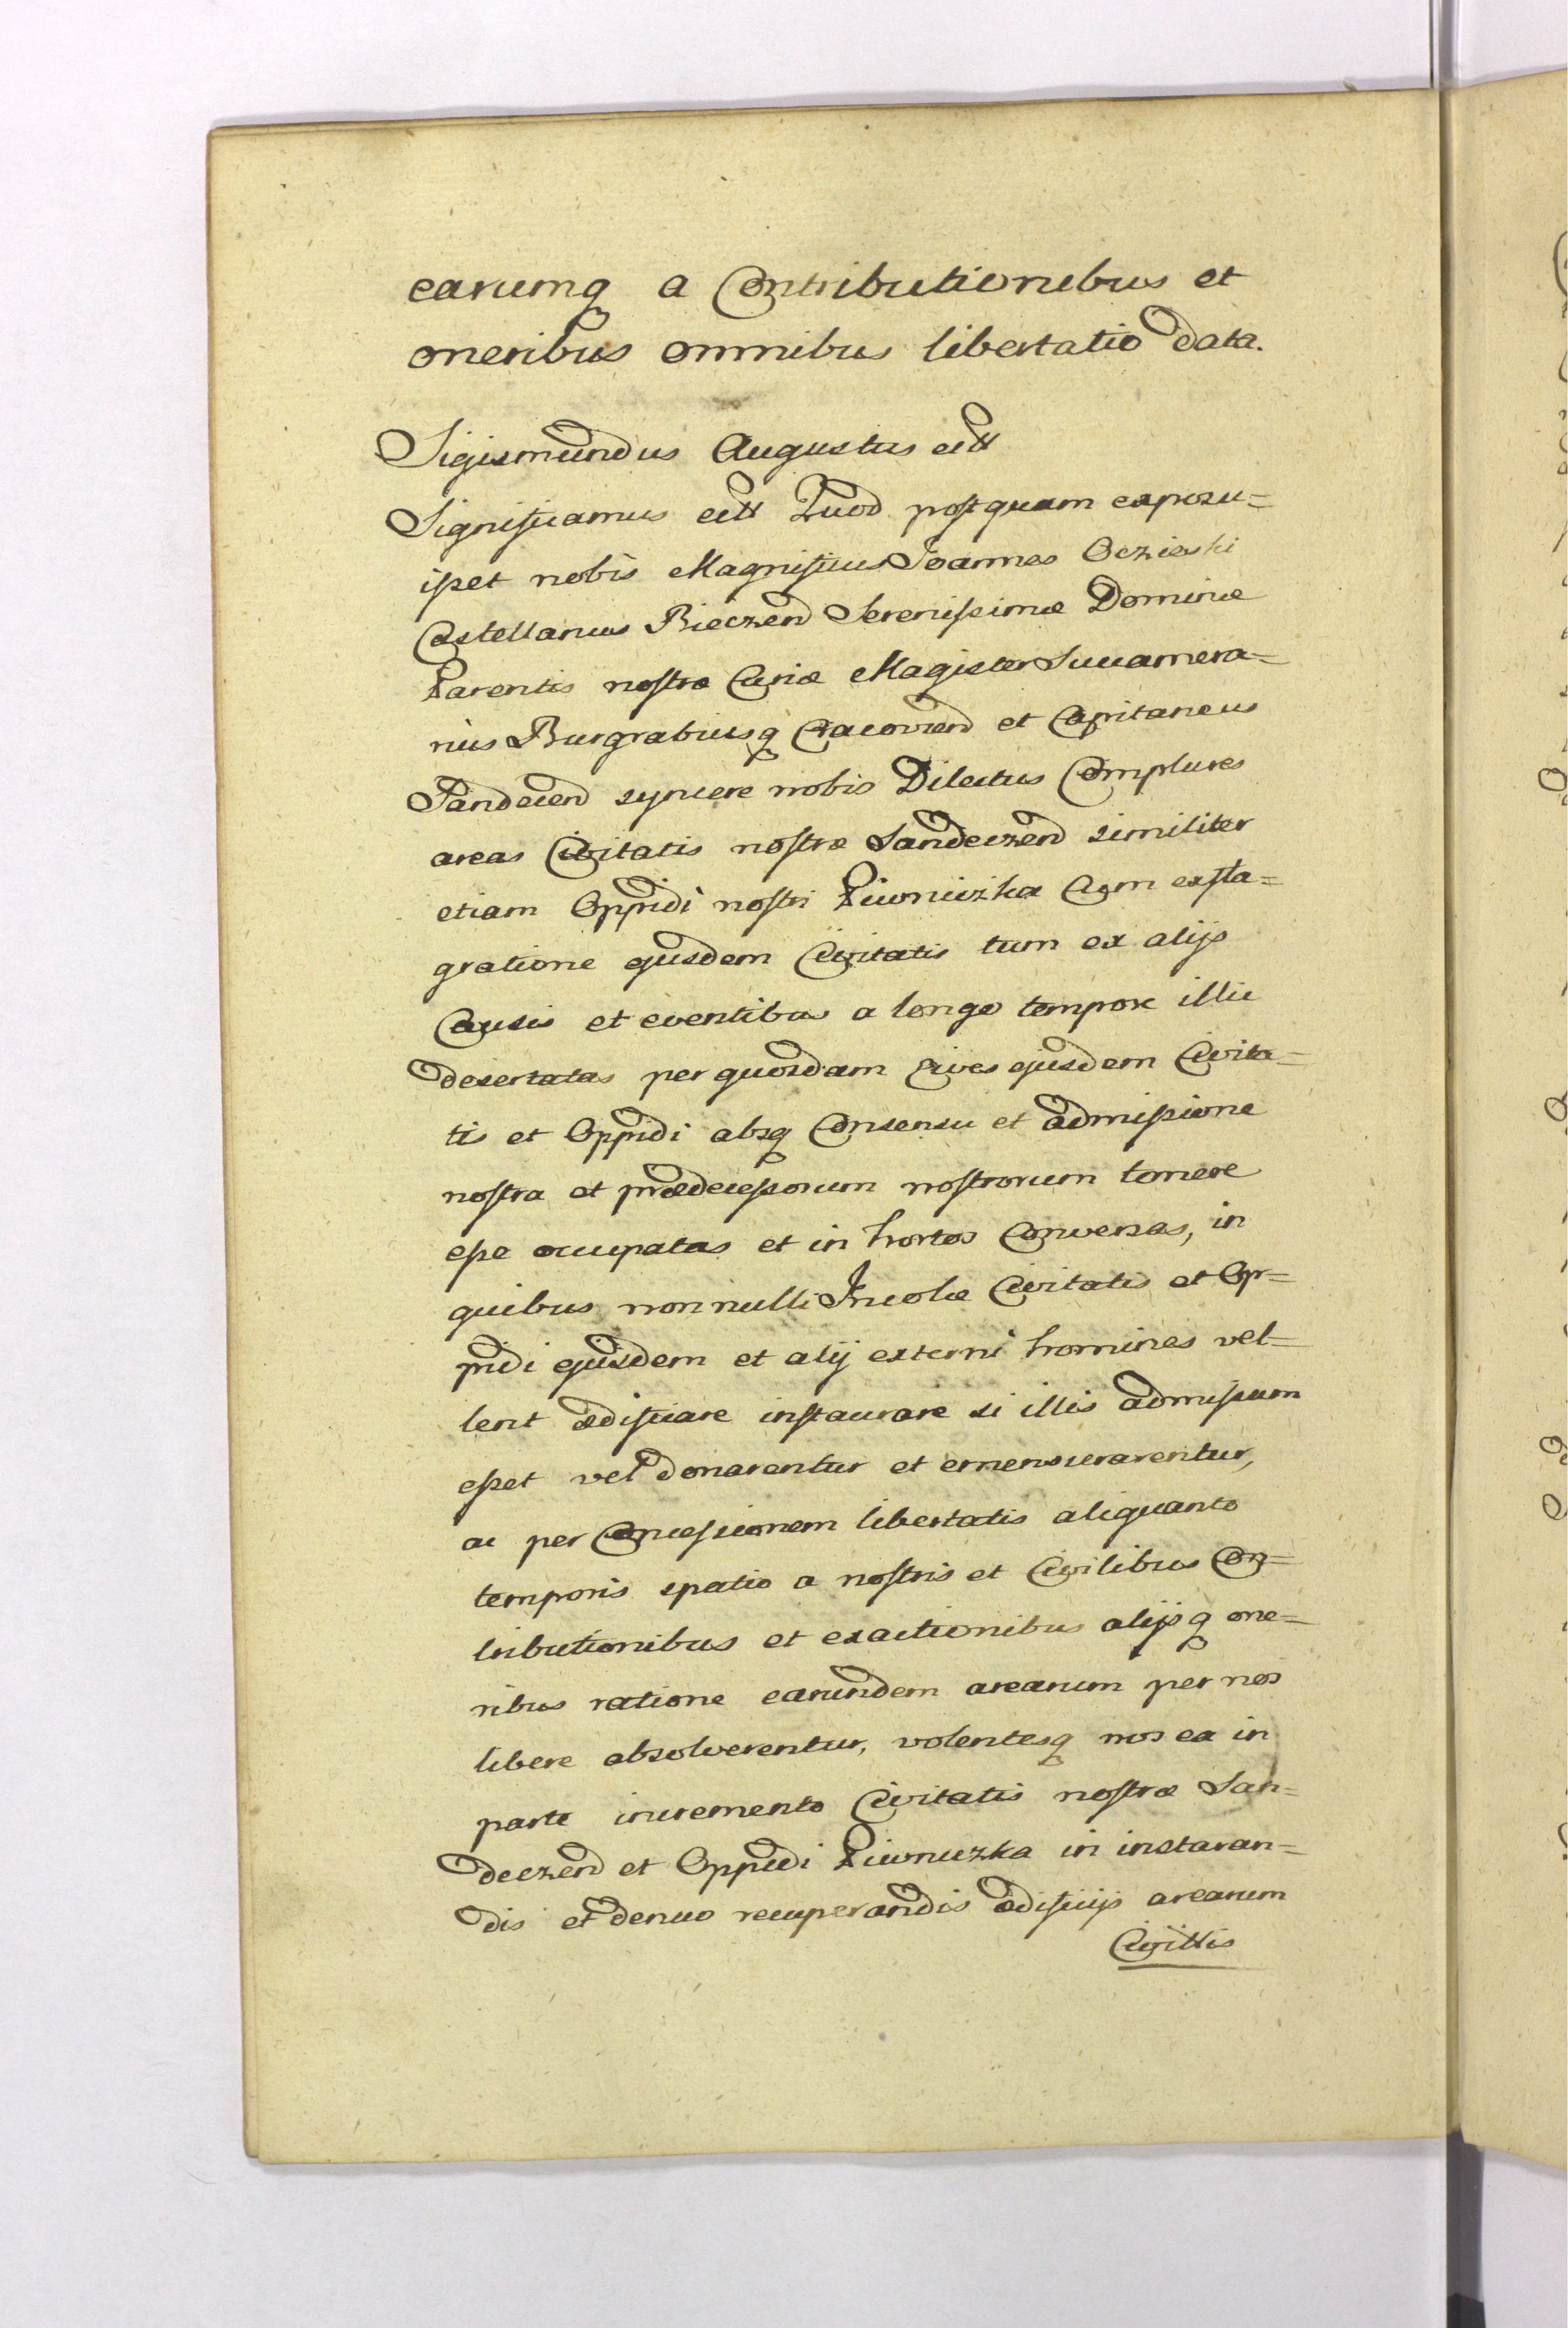 earumq a Contributionibus et
oneribus omnibus libertatio data.
Sigismundus Augustus ett
Significamus ett Quod postquam exposu=
isset nobis Magnificus Joannes Oczieski
Castellanus Bieczen Serenissimæ Dominæ
Parentis nostræ Curiæ Magister Succamera=
rius Burgrabiusq Cracovien et Capitaneus
Sandecen syncere nobis Dilectus Complures
areas Civitatis nostræ Sandeczen similiter
etiam Oppidi nostri Piwniczka Cum exfla=
gratione ejusdem Civitatis tum ex alijs
Causis et eventibus a longo tempore illic
desertatas per quosdam Cives ejusdem Civita=
tis et Oppidi absq Consensu et admissione
nostra et prædecessorum nostrorum temere
esse occupatas et in hortos Conversas, in
quibus nonnulli Incolæ Civitatis et Op=
pidi ejusdem et alij externi homines vel=
lent ædificare instaurare si illis admissum
esset vel donarentur et emensurarentur,
ac per Concessionem libertatis aliquanto
temporis spatio a nostris et Civilibus Con=
tributionibus et exactionibus alijsq one=
ribus ratione earundem arearum per nos
libere absolverentur, volentesq nos ea in
parte incremento Civitatis nostræ San=
deczen et Oppidi Piwniczka in instaran=
dis et denuo recuperandis ædificijs arearum
Civittis